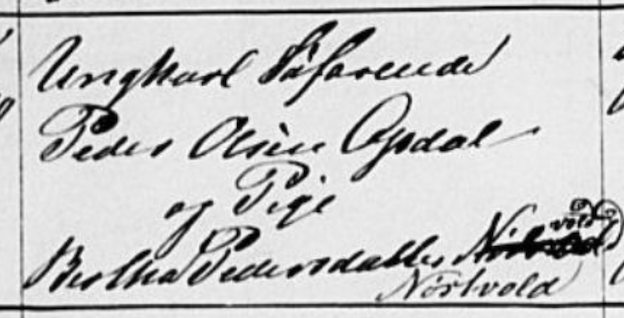 Ungkarl Söfarende
Peder Olsen Opdal
og Pige
Bertha Pedersdatter
Nostvold